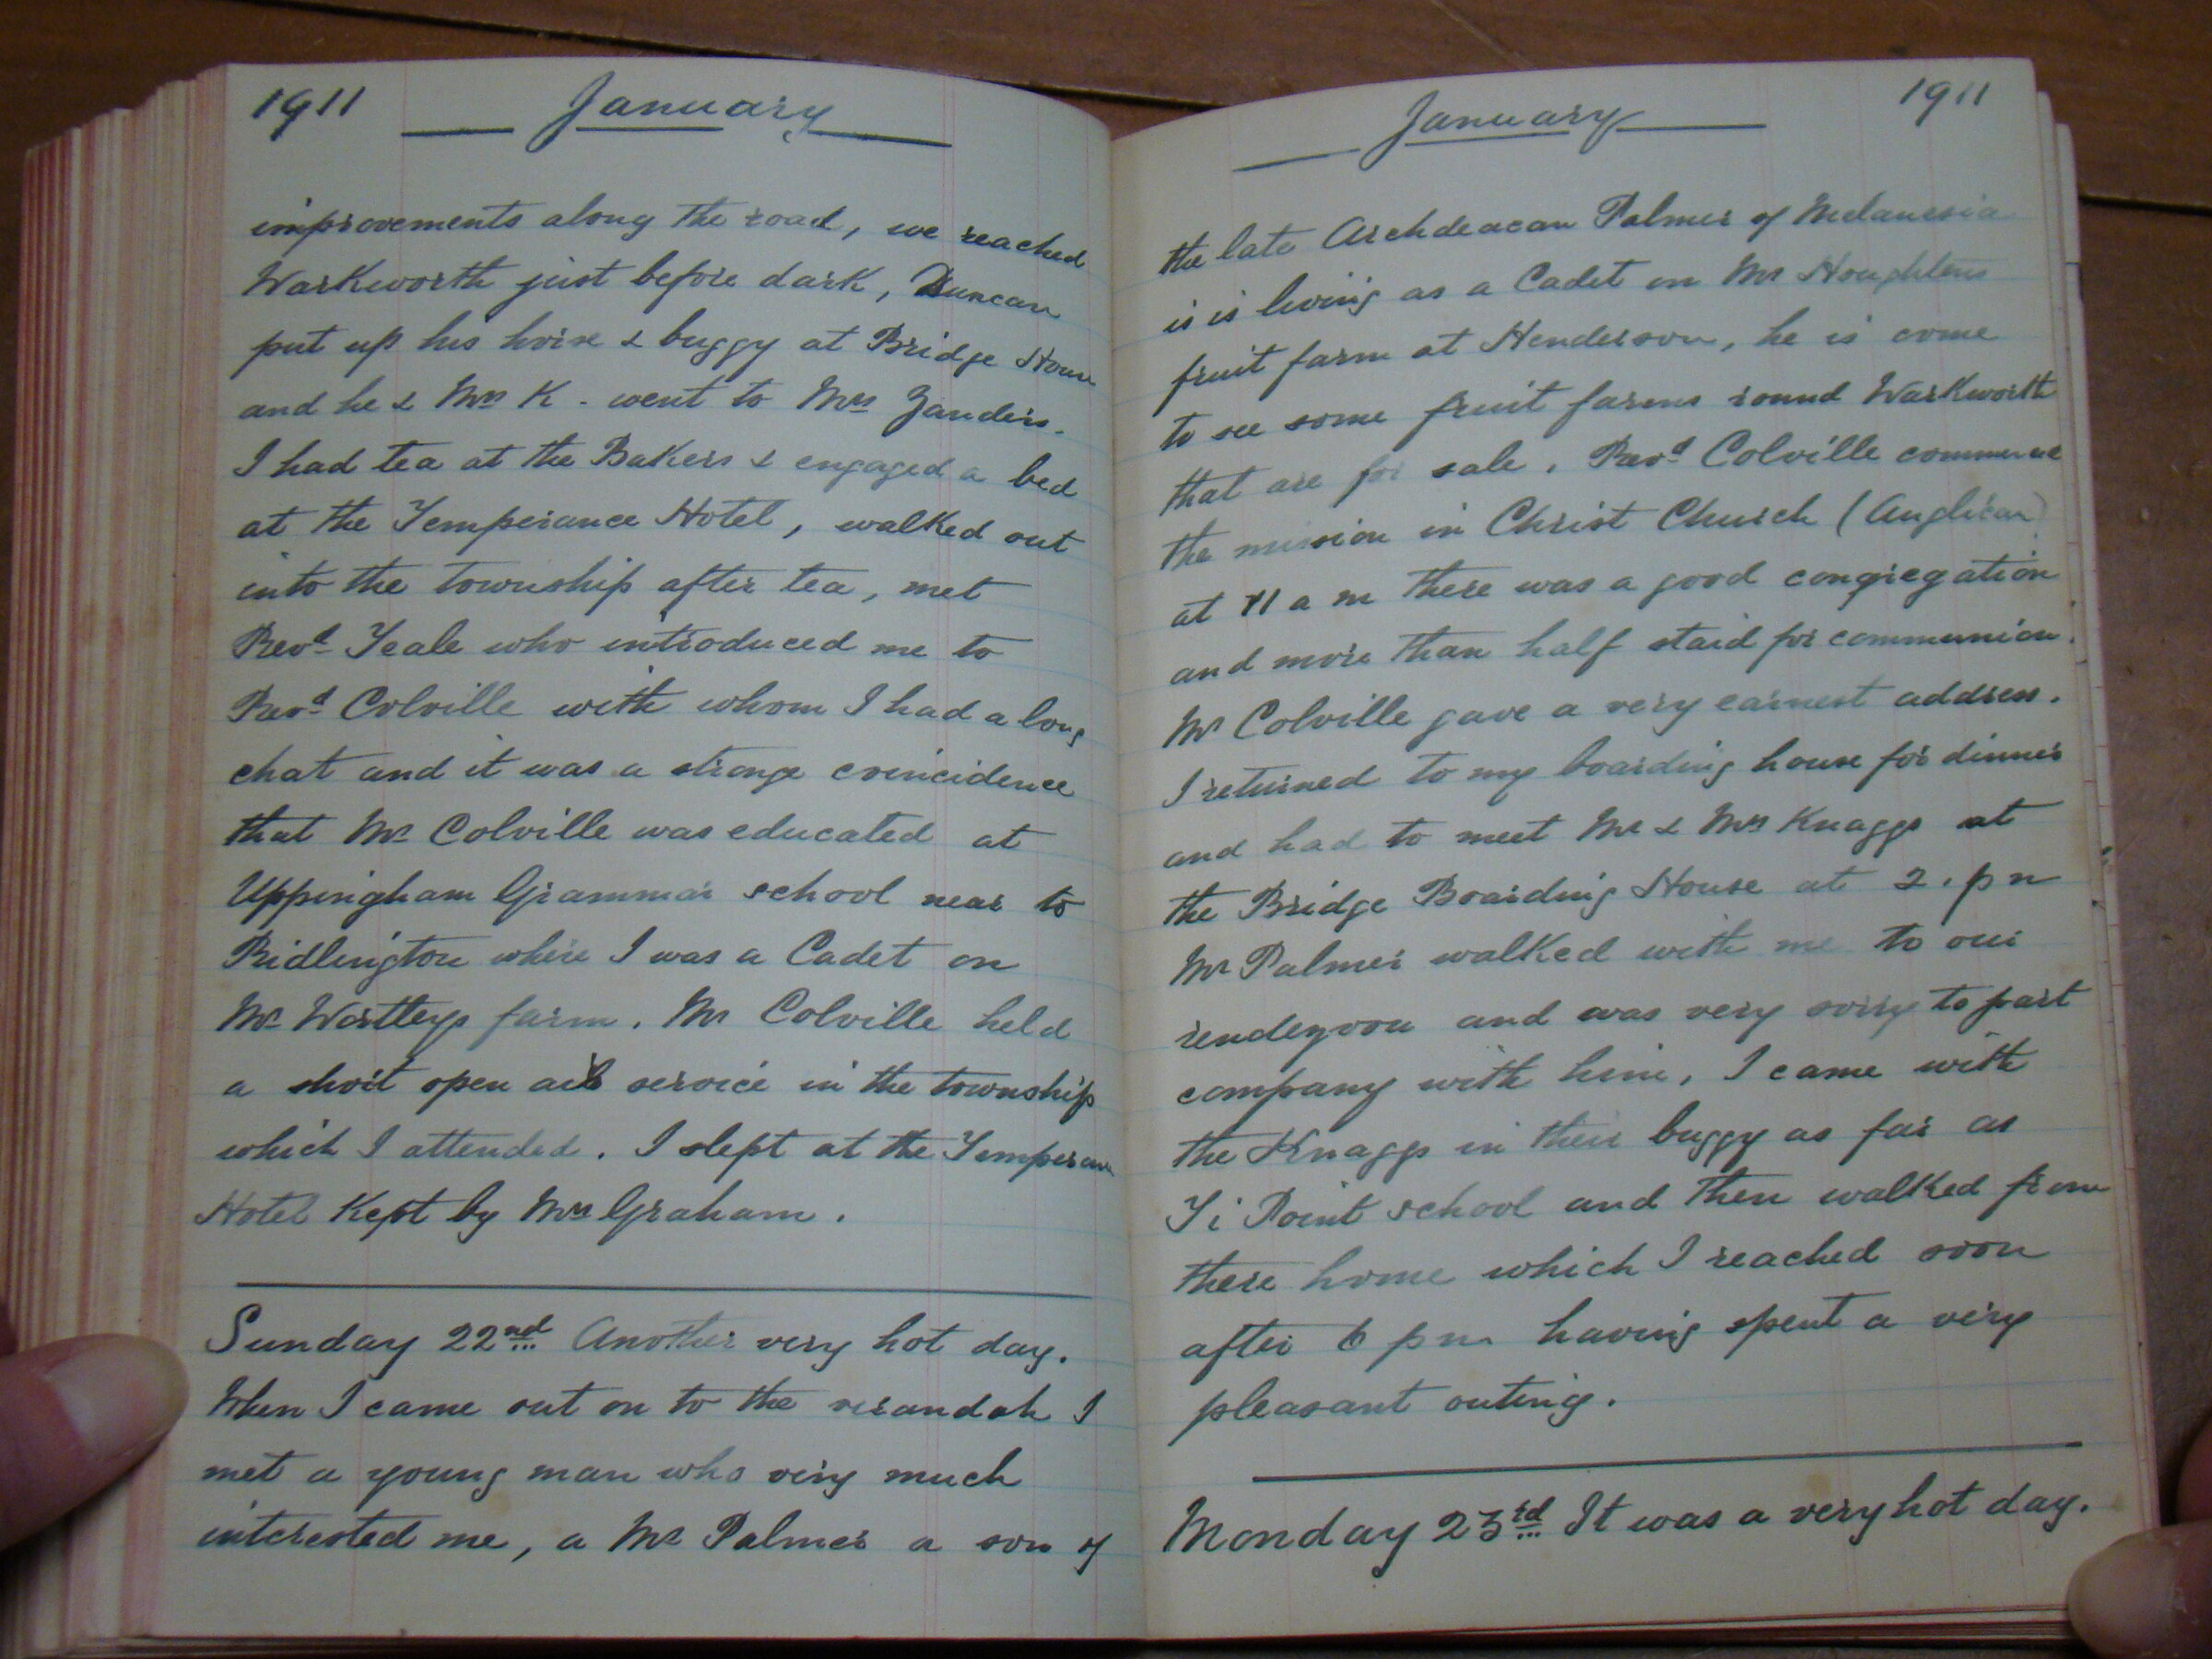 1911 January
improvements along the road, we reached
Warkworth just before dark, Duncan
put up his horse & buggy at Bridge House
and he & Mrs K. went to Mrs Zanders.
I had tea at the Bakers & engaged a bed
at the Temperance Hotel, walked out
into the township after tea, met
Revd Teale who introduced me to
Revd Colville with whom I had a long
chat and it was a strange coincidence
that Mr Colville was educated at
Uppingham Grammar school near to
Ridlington where I was a Cadet on
Mr Wortleys farm. Mr Colville held
a short open air service in the township
which I attended. I slept at the Temperance
Hotel Kept by Mrs Graham.
Sunday 22nd Another very hot day.
When I came out on to the verandah I
met a young man who very much
interested me, a Mr Palmer a son of
January 1911
the late Archdeacan Palmer of Melanesia
is is living as a Cadet on Mr Houghtons
fruit farm at Henderson, he is come
to see some fruit farms round Warkworth
that are for sale. Revd Colville commenced
the mission in Christ Church (Anglican)
at 11 a m there was a good congregation
and more than half staid for communion.
Mr Colville gave a very earnest address.
I returned to my boarding house for dinner
and had to meet Mr & Mrs Knaggs at
the Bridge Boarding House at 2. p m
Mr Palmer walked with me to our
rendezvou and was very sorry to part
company with him, I came with
the Knaggs in their buggy as far as
Ti Point school and then walked from
there home which I reached soon
after 6 p m having spent a very
pleasant outing.
Monday 23rd It was a very hot day.